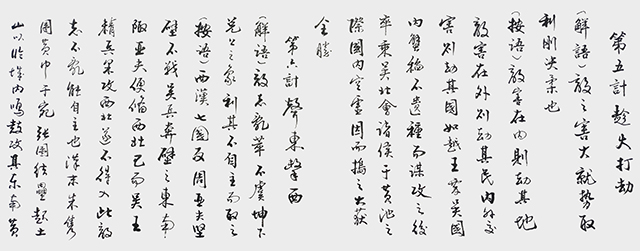 第五計 趁火打劫
（解語）敵之害大就勢取
利剛決柔也
（按語）敵害在內則劫其地
敵害在外則劫其民內外交
害則劫其國如越王乘吳國
內蟹稻不遺種而謀攻之後
卒乘吳北會諸侯于黃池之
際國內空虛因而搗之大獲
全勝
第六計 聲東擊西
（解語）敵志亂萃不虞坤下
兌上之象利其不自主而取之
（按語）西漢七國反周亞夫堅
壁不戰吳兵奔壁之東南
陬亞夫使備西北已而吳王
精兵果攻西北遂不得入此敵
志不亂能自主也漢末朱雋
圍黃巾于宛張圍結壘起土
山以臨城內鳴鼓攻其東南黃